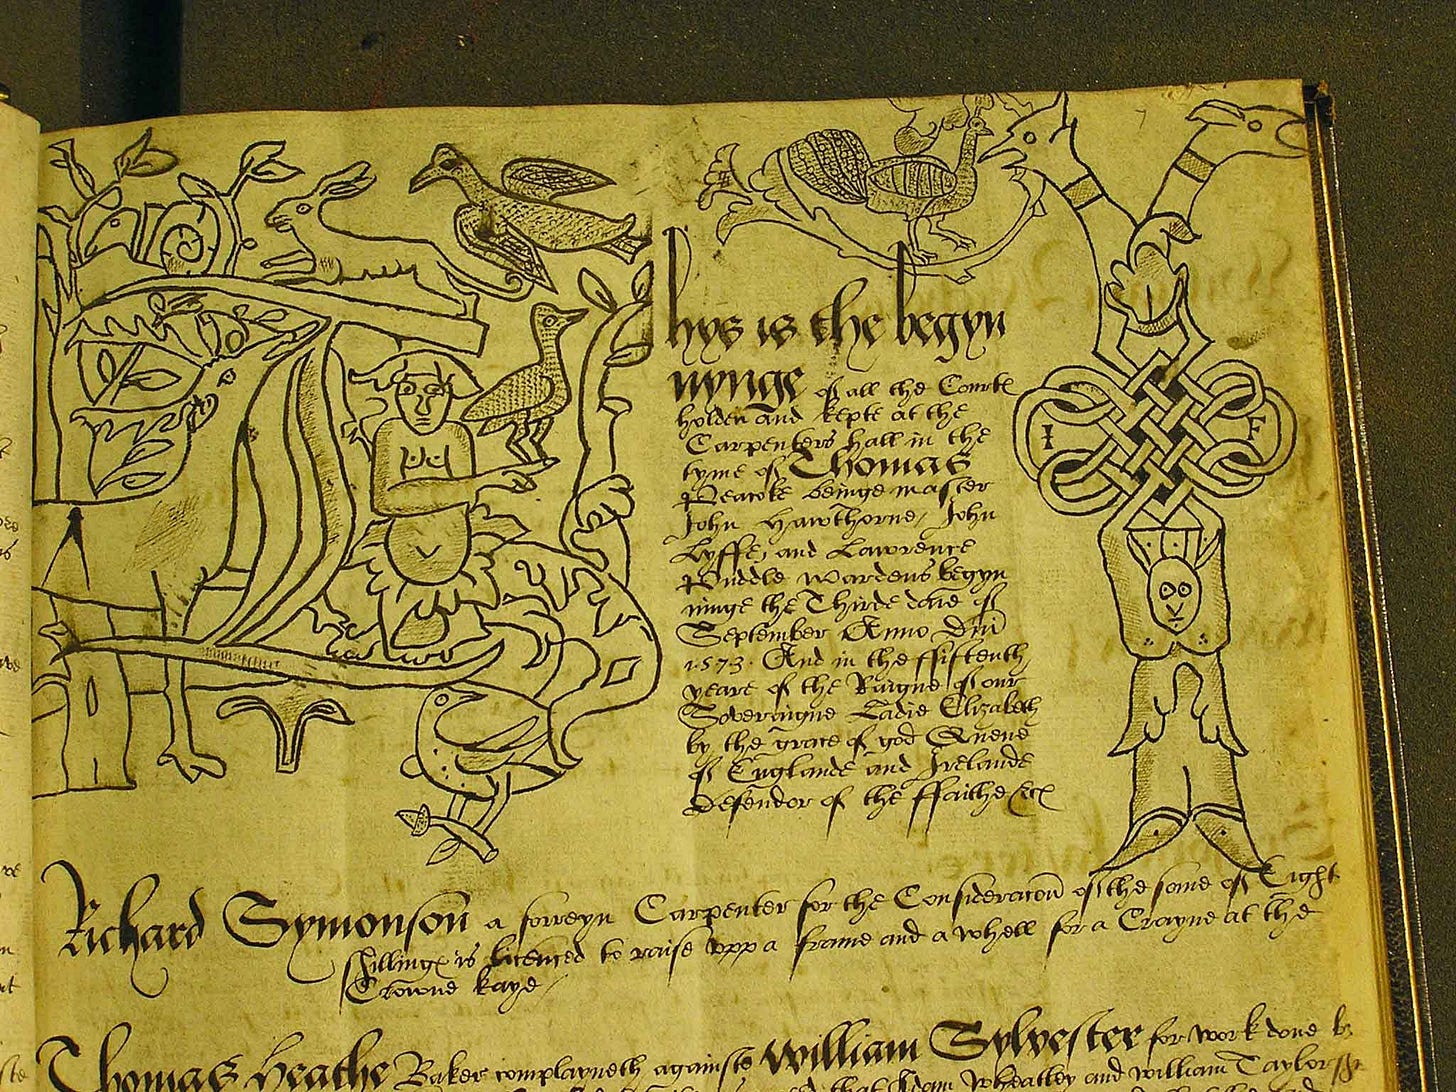 Thys is the begyn
nynge of all the Courte
holden and kepte at the
Carpenters hall in the
tyme of Thomas
Peacoke beinge master
John Hawthorne, John
Lyffe, and Lawrence
Puddle wardens begyn
ninge the Thirde daie of
September Anno Dni
1573. And in the ffifteenth
yeare of the Raigne of our
Soveraigne Ladie Elizabeth
by the grace of god Quene
of Englande and Irelande
Defendor of the ffaithe &c
I F
Richard Symonson a forreyn Carpenter for the Consideracon of the some of Eight
shillings is licenced to raise upp a frame and a whell for a Crayne at the
Crowne kaye
Thomas Heathe Baker complayneth againste William Sylvester for work done by
that Adam Wheatley and William Taylor